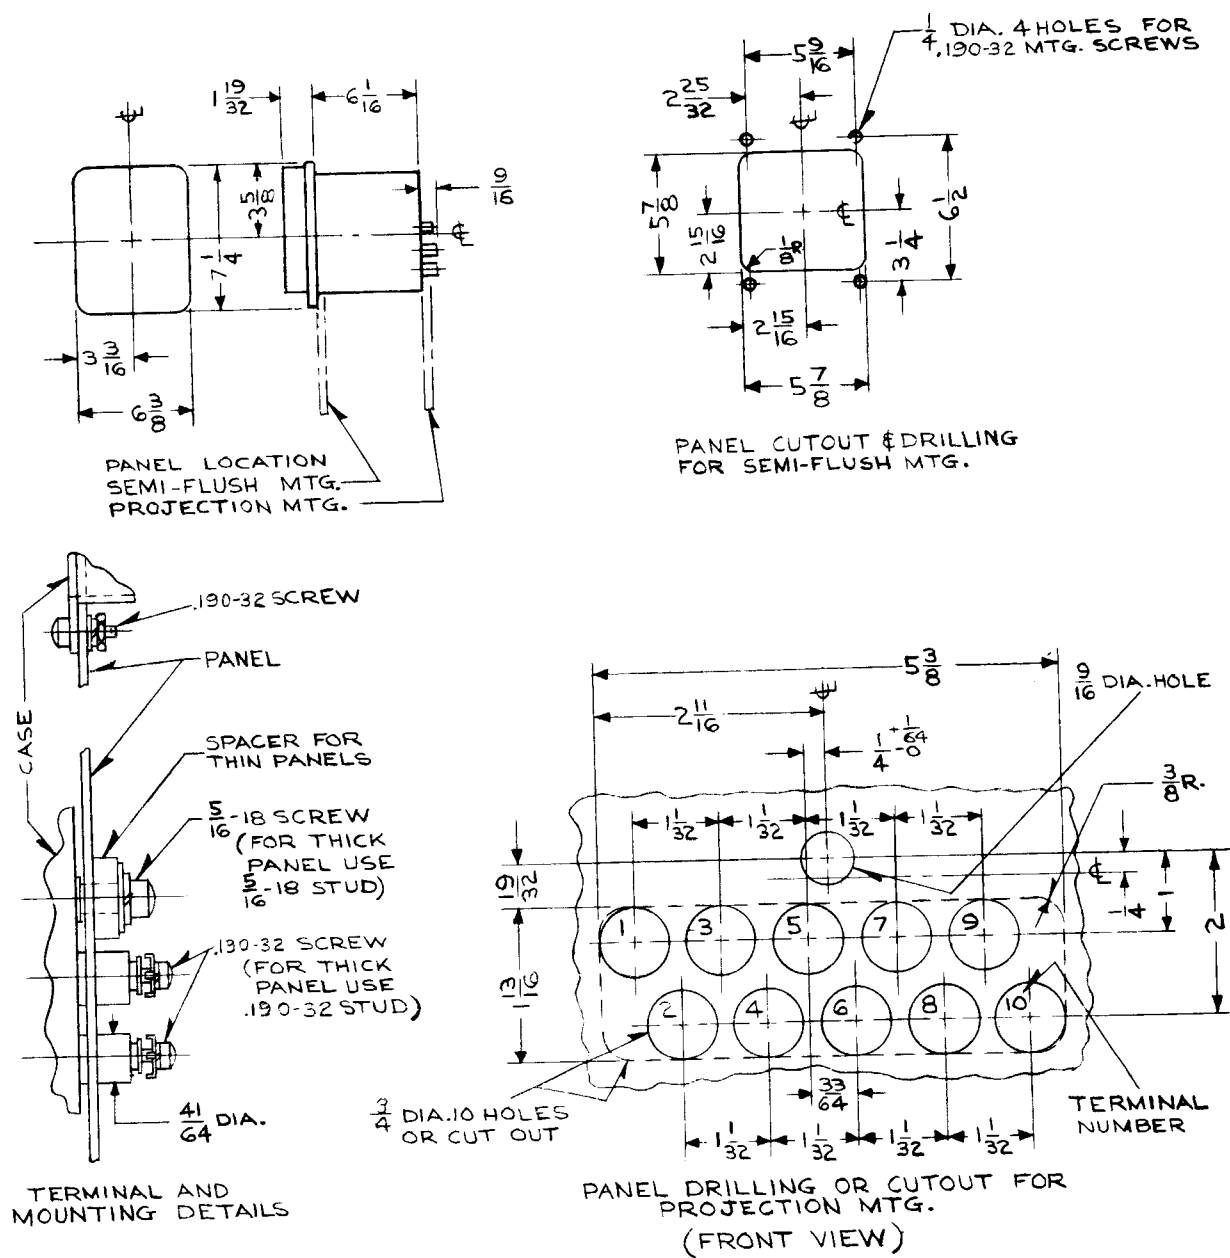 1 19/32
6 1/16
℄
3 5/8
7 1/4
9/16
℄
3 3/16
6 3/8
PANEL LOCATION
SEMI-FLUSH MTG.
PROJECTION MTG.
1/4 DIA. 4 HOLES FOR
.190-32 MTG. SCREWS
5 9/16
2 25/32
℄
5 7/8
2 15/16
1/8 R
℄
3 1/4
6 1/2
2 15/16
5 7/8
PANEL CUTOUT & DRILLING
FOR SEMI-FLUSH MTG.
.190-32 SCREW
PANEL
CASE
SPACER FOR
THIN PANELS
5/16-18 SCREW
(FOR THICK
PANEL USE
5/16-18 STUD)
.190-32 SCREW
(FOR THICK
PANEL USE
.190-32 STUD)
41/64 DIA.
TERMINAL AND
MOUNTING DETAILS
5 3/8
9/16 DIA. HOLE
℄
2 11/16
1/4 +1/64 -0
3/8 R.
1 1/32
1 1/32
1 1/32
1 1/32
19/32
℄
1/4
1
2
1
3
5
7
9
1 13/16
2
4
6
8
10
33/64
3/4 DIA. 10 HOLES
OR CUT OUT
TERMINAL
NUMBER
1 1/32
1 1/32
1 1/32
1 1/32
PANEL DRILLING OR CUTOUT FOR
PROJECTION MTG.
(FRONT VIEW)